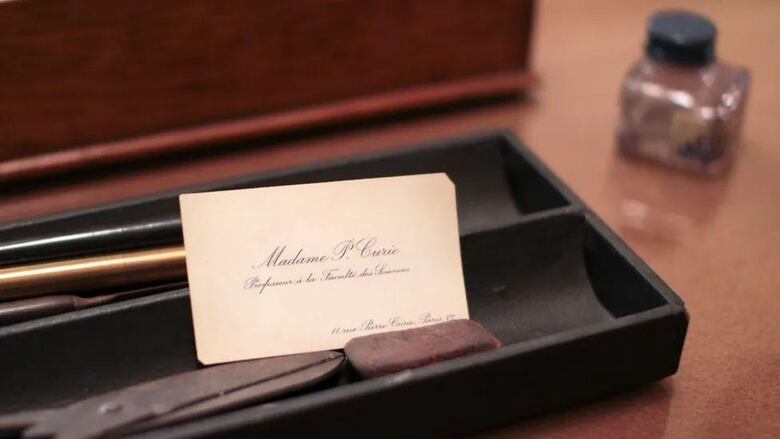 Madame P. Curie
Professeur à la Faculté des Sciences
11, rue Pierre Curie, Paris, 5e